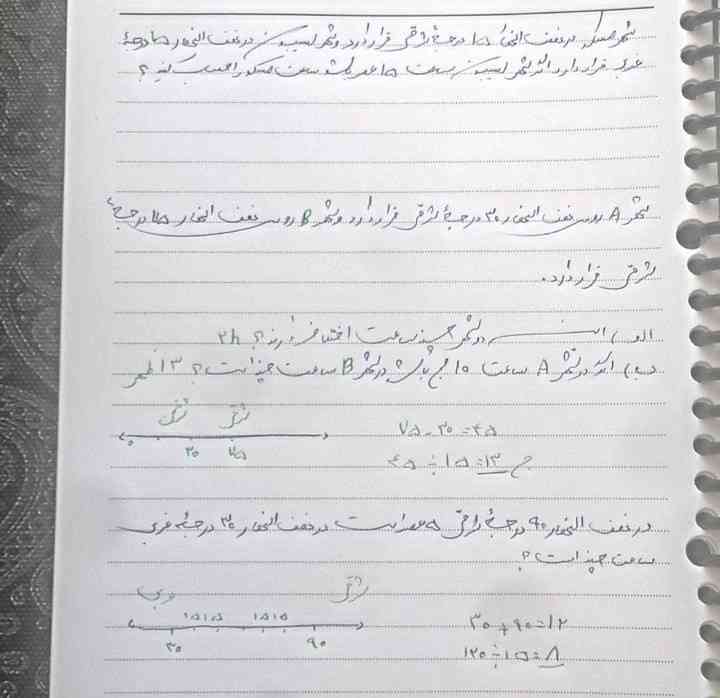 شهر مسکو در نصف النهار ۱۵ درجهٔ شرقی قرار دارد و شهر لیسبون در نصف النهار ۱۵ درجهٔ
غربی قرار دارد اگر شهر لیسبون ساعت ۱۵ عصر باشد ساعت مسکو را حساب کنید؟
شهر A روی نصف النهار ۳۰ درجهٔ شرقی قرار دارد و شهر B روی نصف النهار ۷۵ درجهٔ
شرقی قرار دارد.
الف) این دو شهر چند ساعت اختلاف دارند؟ ۳h
ب) اگر در شهر A ساعت ۱۰ صبح باشد در شهر B ساعت چند است؟ ۱۳ ظهر
شرقی شرقی
۰ ۳۰ ۷۵
۷۵-۳۰=۴۵
۴۵÷۱۵=۳
در نصف النهار ۹۰ درجهٔ شرقی ۵ عصر است در نصف النهار ۳۰ درجهٔ غربی
ساعت چند است؟
غربی شرقی
۱۵ ۱۵ ۱۵ ۱۵
۳۰ ۹۰
۳۰+۹۰=۱۲
۱۲۰÷۱۵=۸